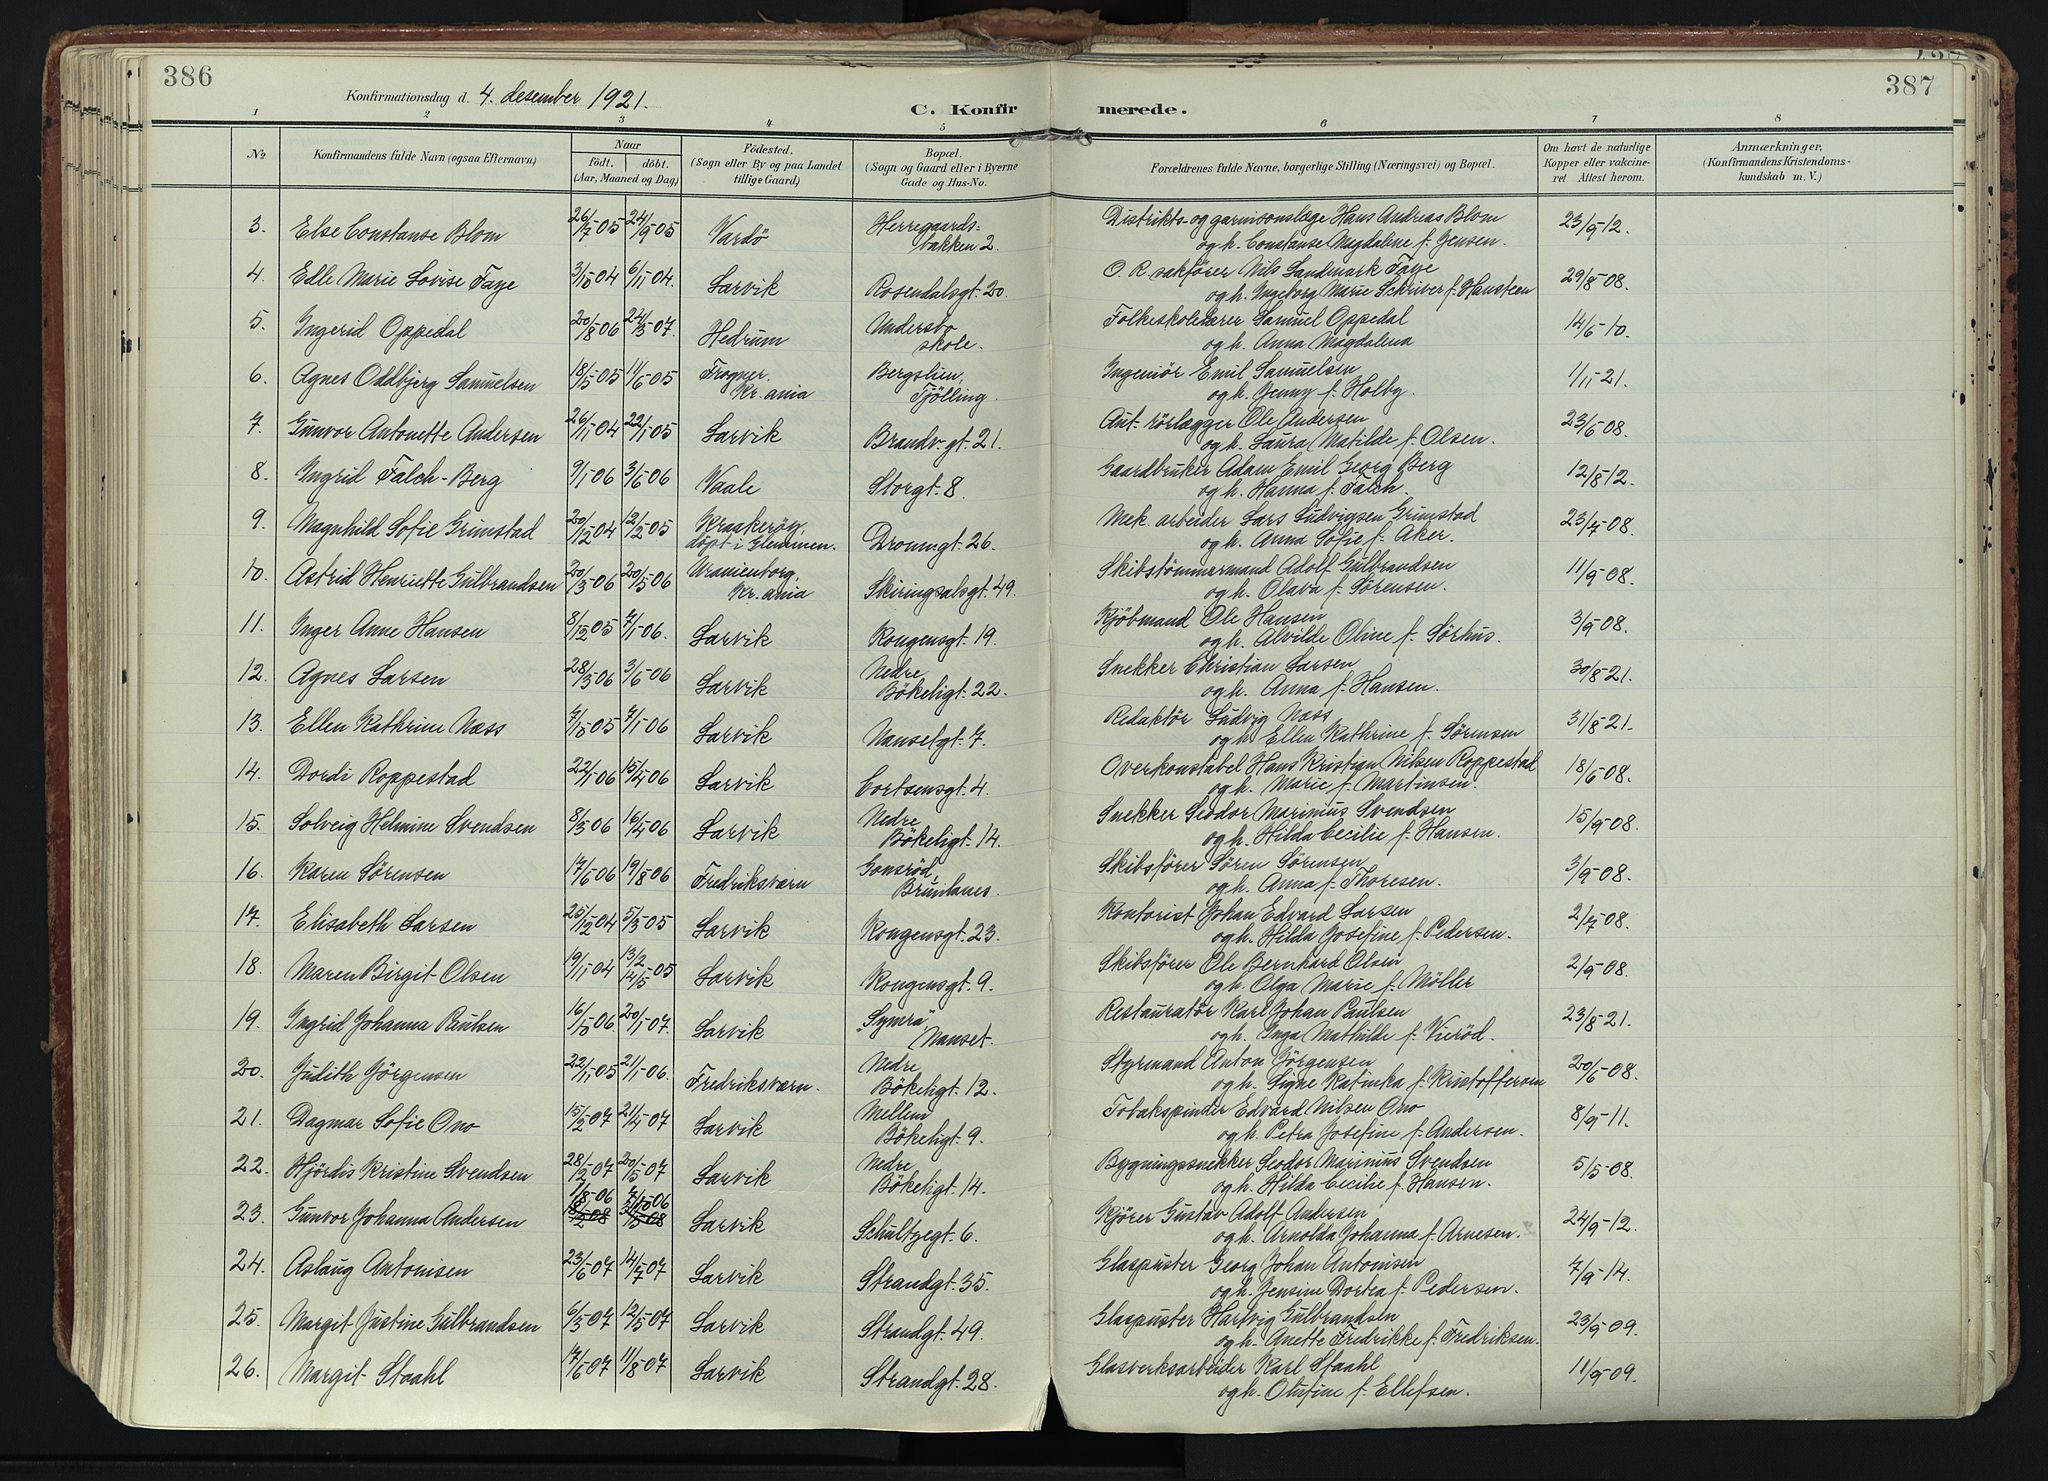 386
387
Konfirmationsdag d. 4. desember 1921.
C. Konfirmerede.
1 2 3 4 5 6 7 8
No
Konfirmandens fulde Navn (ogsaa Efternavn)
Naar
født. døbt.
(Aar, Maaned og Dag)
Fødested.
(Sogn eller By og paa Landet
tillige Gaard)
Bopæl.
(Sogn og Gaard eller i Byerne
Gade og Hus-No.
Forældrenes fulde Navne, borgerlige Stilling (Næringsvei) og Bopæl.
Om havt de naturlige
Kopper eller vaccine-
ret. Attest herom.
Anmærkninger.
(Konfirmandens Kristendoms-
kundskab m. V.)
3. Else Constanse Blom 26/7-05 24/9-05 Vardö Herregaards- bakken 2. Distrikts- og garnisonslæge Hans Andreas Blom 23/9-12.
og h. Constanse Magdalene f. Jensen.
4. Elle Marie Lovise Faye 3/10-04 6/11-04. Larvik Rosendalsgt. 20. O. R. sakfører Nils Landmark Faye 29/8-08.
og h. Ingeborg Marie Schriver f. Hansteen
5. Ingerid Oppedal 20/8-06 24/3-07. Hedrum Undersbo skole. Folkeskolelærer Samuel Oppedal 14/6-10.
og h. Anna Magdalena
6. Agnes Oddbjørg Samuelsen 18/5-05 11/6-05 Frogner, Kr.ania Bergslien, Tjölling. Ingeniör Emil Samuelsen 1/11-21.
og h. Jenny f. Holby.
7. Gunvor Antonette Andersen 26/11-04 22/1-05 Larvik Brandv.gt. 21. Aut. rörlægger Ole Andersen 23/6-08.
og h. Laura Matilde f. Olsen.
8. Ingrid Falch-Berg 9/1-06 3/6-06 Vaale Storgt. 8. Gaardbruker Adam Emil Georg Berg 12/8-12.
og h. Hanna f. Falch.
9. Magnhild Sofie Grimstad 20/12-04 12/2-05 Kraakeröy, döpt i Glemmen. Dronn.gt. 26. Mek. arbeider Lars Ludvigsen Grimstad 23/7-08.
og h. Anna Sofie f. Aker.
10. Astrid Henriette Gulbrandsen 20/3-06 20/5-06 Uranienborg, Kr.ania Skiringsalsgt. 49. Skibstömmermand Adolf Gulbrandsen 11/9-08.
og h. Olava f. Sörensen.
11. Inger Anne Hansen 8/12-05 7/1-06. Larvik Kongensgt. 19. Kjöbmand Ole Hansen 3/9-08.
og h. Alvilde Oline f. Sörhus.
12. Agnes Larsen 28/3-06 3/6-06 Larvik Nedre Bökeligt. 22. Snekker Christian Larsen 30/8-21.
og h. Anna f. Hansen.
13. Ellen Kathrine Næss 7/10-05 7/1-06 Larvik Nansetgt. 7. Redaktör Ludvig Næss 31/8-21.
og h. Ellen Kathrine f. Sörensen
14. Dordi Roppestad 22/1-06 15/4-06 Larvik Cortsensgt. 4. Overkonstabel Hans Kristian Nilsen Roppestad 18/6-08.
og h. Marie f. Martinsen.
15. Solveig Helmine Svendsen 8/3-06 16/4-06 Larvik Nedre Bökeligt. 14. Snekker Seodor Marinius Svendsen 15/9-08.
og h. Hilda Cecilie f. Hansen.
16. Karen Sörensen 17/6-06 19/8-06 Fredriksværn Gonsröd, Brunlanes. Skibsförer Sören Sörensen 3/9-08.
og h. Anna f. Thoresen.
17. Elisabeth Larsen 25/12-04 5/3-05 Larvik Kongensgt. 23. Kontorist Johan Edvard Larsen 2/7-08.
og h. Hilda Josefine f. Pedersen.
18. Maren Birgit Olsen 19/11-04 13/2 14/5-05 Larvik Kongensgt. 9. Skibsförer Ole Bernhard Olsen 2/9-08.
og h. Olga Marie f. Möller
19. Ingrid Johanna Paulsen 16/10-06 20/1-07. Larvik "Symra" Nanset. Restauratör Karl Johan Paulsen 23/8-21.
og h. Inga Mathilde f. Vieröd.
20. Judith Jörgensen 22/11-05 21/1-06. Fredriksværn. Nedre Bökeligt. 12. Styrmand Anton Jörgensen 20/6-08.
og h. Signe Katinka f. Kristoffersen
21. Dagmar Sofie Ono 15/2-07 21/4-07 Larvik Mellem Bökeligt. 9. Tobakspinder Edvard Nilsen Ono 8/9-11.
og h. Petra Josefine f. Andersen.
22. Hjördis Kristine Svendsen 28/2-07 20/5-07 Larvik Nedre Bökeligt. 14. Bygningssnekker Seodor Marinius Svendsen 5/5-08.
og h. Hilda Cecilie f. Hansen.
23. Gunvor Johanna Andersen 1/8-06 7/10-06 Larvik Schultzegt. 6. Kjörer Gustav Adolf Andersen 24/9-12.
og h. Arnolda Johanna f. Arnesen.
24. Aslaug Antonisen 23/6-07 14/7-07 Larvik Strandgt. 35. Glaspuster Georg Johan Antonisen 7/9-14.
og h. Jensine Dortea f. Pedersen.
25. Margit Justine Gulbrandsen 6/3-07 12/5-07 Larvik Strandgt. 49. Glaspuster Hartvig Gulbrandsen 23/9-09.
og h. Anette Fredrikke f. Fredriksen.
26. Margit Staahl 17/6-07 11/8-07 Larvik Strandgt. 28. Glasverksarbeider Karl Staahl 11/9-09.
og h. Olufine f. Ellefsen.